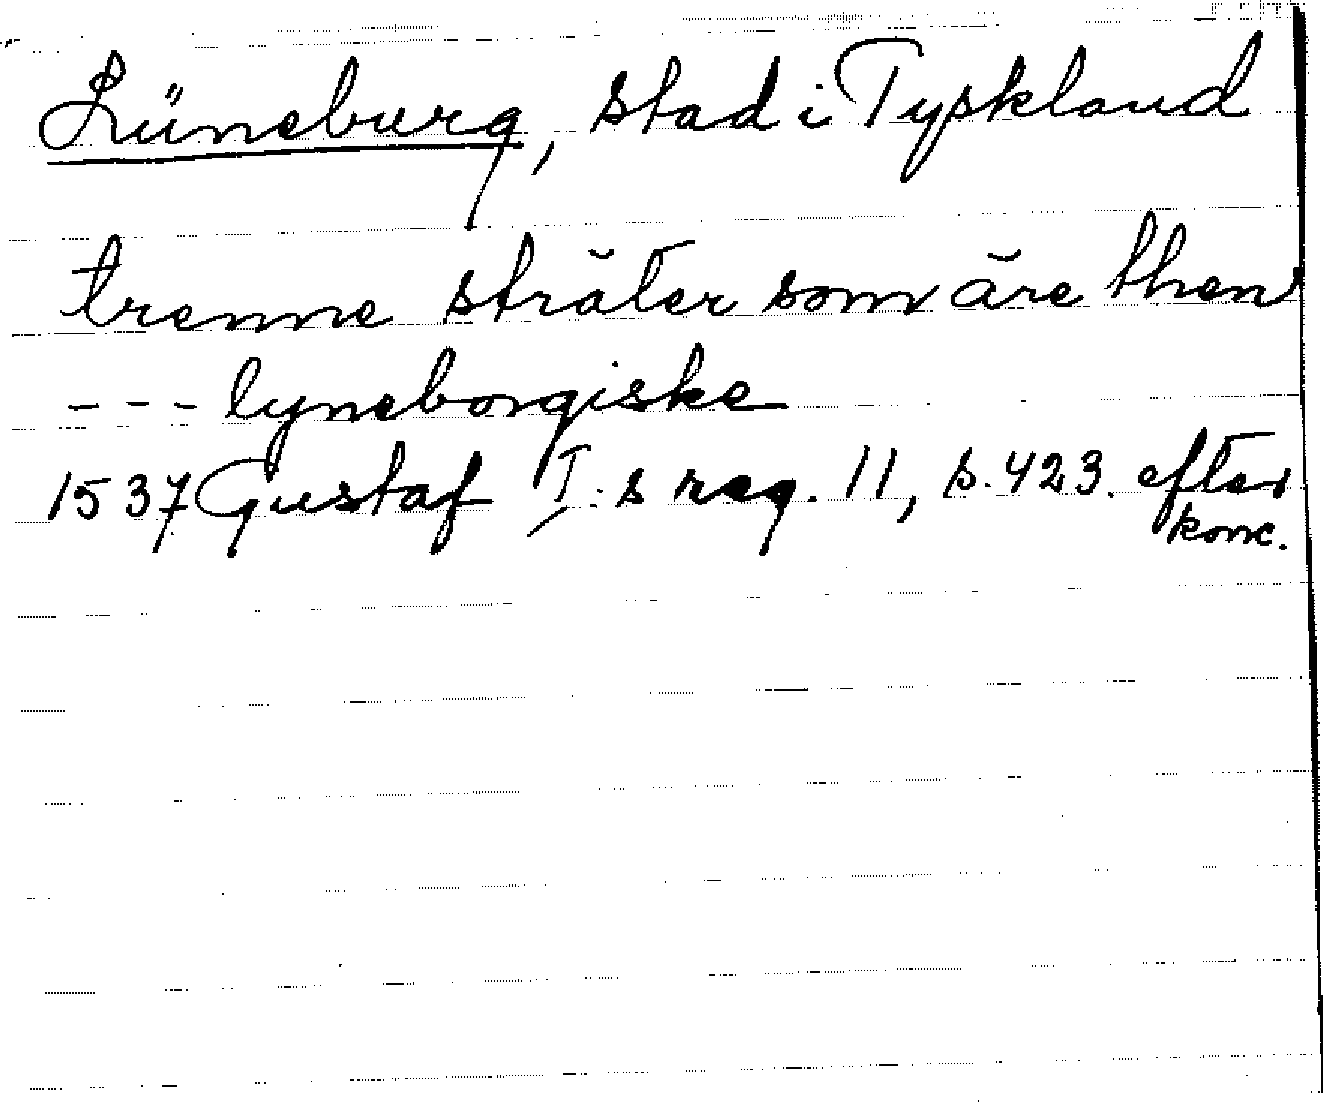 Lüneburg, stad i Tyskland
trenne sträter som äre then
--- lyneborgiske
1537 Gustaf I:s reg. 11, s. 423. efter
konc.